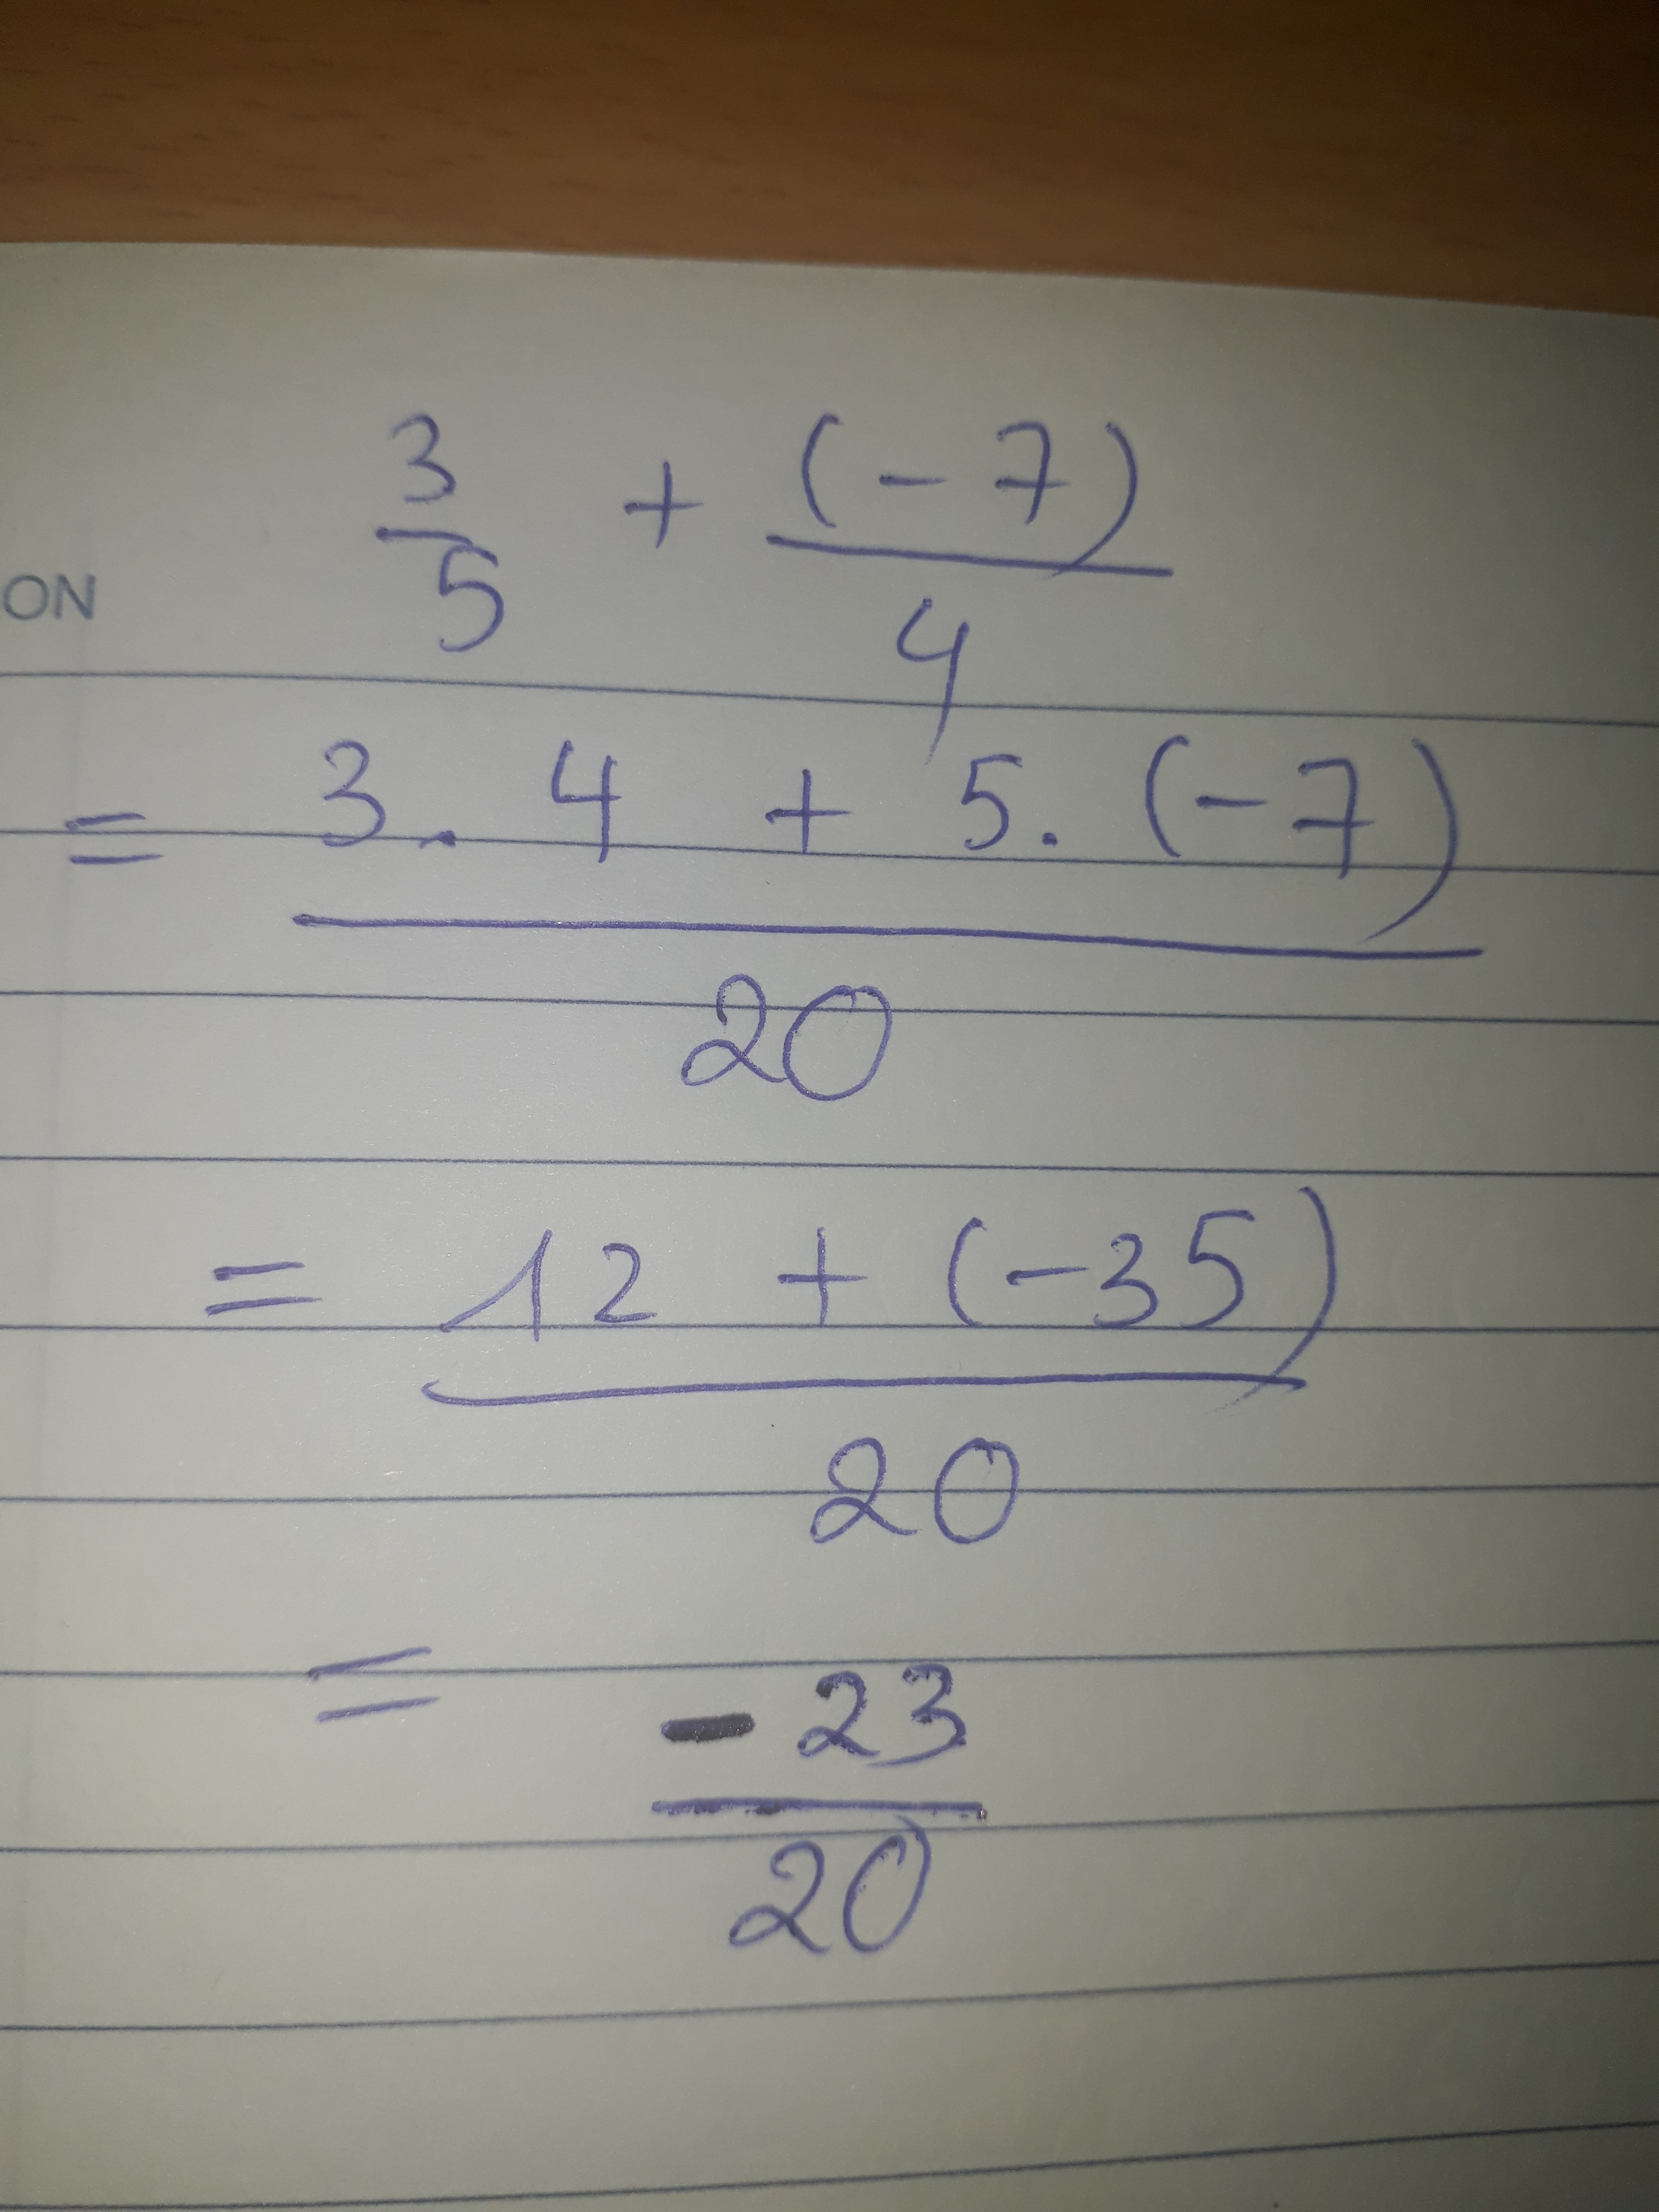 3/5 + (-7)/4
ON
= 3 . 4 + 5 . (-7)
20
= 12 + (-35)
20
= -23
20